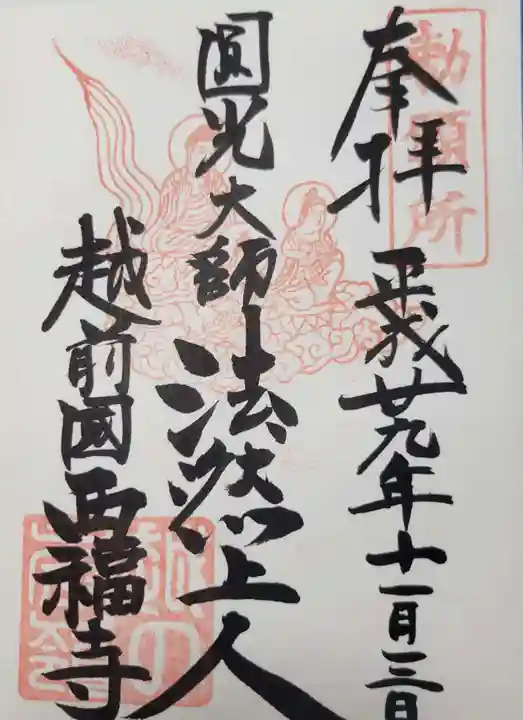 勅願所
奉拝 平成廿九年十一月三日
圓光大師 法然上人
越前國西福寺